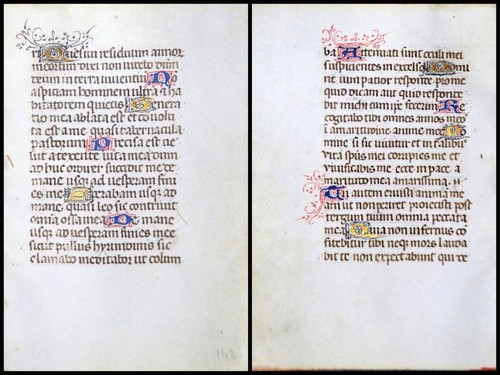 ri Quesivi residuum annor
meorum dixi non videbo dnm
deum in terra viventiu No
aspiciam hominem ultra & ha
bitatorem quietis Gene
ratio mea ablata est et convolu
ta est a me quasi tabernacula
pastorum Precisa est ve
lut a texente vita mea dum
adhuc ordirer succidit me de
mane usq ad vesperam fini
es me Sperabam usq ad
mane quasi leo sic contrivit
omnia ossa mea De mane
usq ad vesperam finies me
sicut pullus hyrundinis sic
clamabo meditabor ut colum
142
ba Attenuati sunt oculi mei
suspicientes in excelso Domi
ne vim patior responde pro me
quid dicam aut quid responde
bit michi cum ipse fecerim Re
cogitabo tibi omnes annos meos
in amaritudine anime mee Do
mine si sic vivitur et in talibus
vita spus mei corripies me et
vivificabis me ecce in pace a
maritudo mea amarissima
Tu autem eruisti animam me
am ut non periret proiecisti post
tergum tuum omnia peccata
mea Quia non infernus co
fitebitur tibi neq mors lauda
bit te non expectabunt qui de